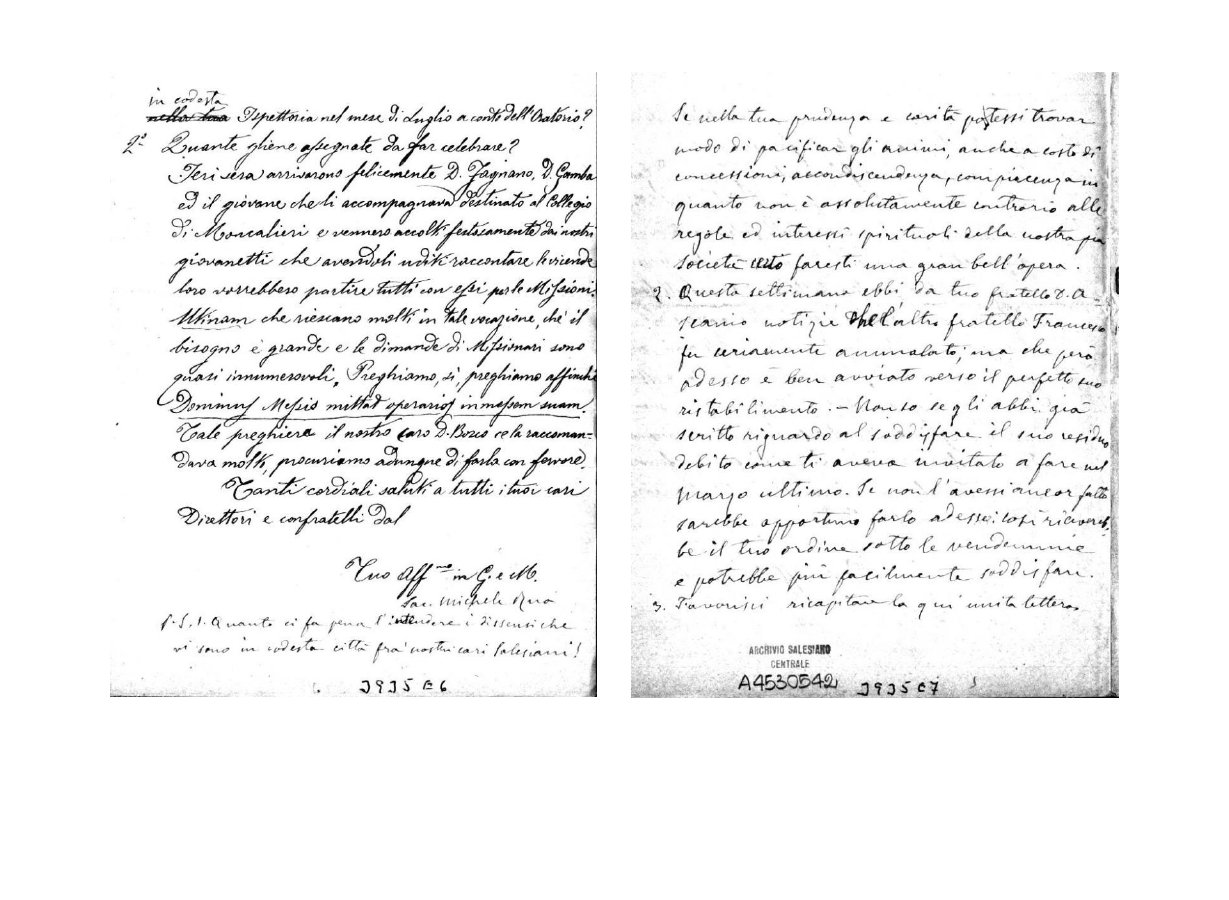 in codesta
nella tua Ispettoria nel mese di Luglio a conto dell'Oratorio?
2° Quante gliene assegnate da far celebrare?
Ieri sera arrivarono felicemente D. Fagnano, D. Gamba
ed il giovane che li accompagnava destinato al Collegio
di Moncalieri e vennero accolti festosamente dai nostri
giovanetti che avendoli uditi raccontare le vicende
loro vorrebbero partire tutti con essi per le Missioni.
Utinam che riescano molti in tale vocazione, chè il
bisogno è grande e le dimande di Missionari sono
quasi innumerevoli. Preghiamo, sì, preghiamo affinchè
Dominus Messis mittat operarios in messem suam.
Tale preghiera il nostro caro D. Bosco ce la raccoman-
dava molto, procuriamo adunque di farla con fervore.
Tanti cordiali saluti a tutti i tuoi cari
Direttori e confratelli dal
Tuo Aff.mo in G. e M.
Sac. Michele Rua
P.S. 1. Quanto ci fa pena l'intendere i dissensi che
vi sono in codesta città fra nostri cari Salesiani!
J935E6
Se nella tua prudenza e carità potessi trovar
modo di pacificar gli animi, anche a costo di
concessioni, accondiscendenza, compiacenza in
quanto non è assolutamente contrario alle
regole ed interessi spirituali della nostra pia
società certo faresti una gran bell'opera.
2. Questa settimana ebbi da tuo fratello D. A-
scanio notizie che l'altro fratello Francesco
fu seriamente ammalato; ma che però
adesso è ben avviato verso il perfetto suo
ristabilimento. - Non so se gli abbi già
scritto riguardo al soddisfare il suo residuo
debito come ti aveva invitato a fare nel
marzo ultimo. Se non l'avessi ancor fatto
sarebbe opportuno farlo adesso: così riceverеb-
be il tuo ordine sotto le vendemmie
e potrebbe più facilmente soddisfare.
3. Favorisci ricapitare la qui unita lettera
ARCHIVIO SALESIANO
CENTRALE
A4530542 J935E7